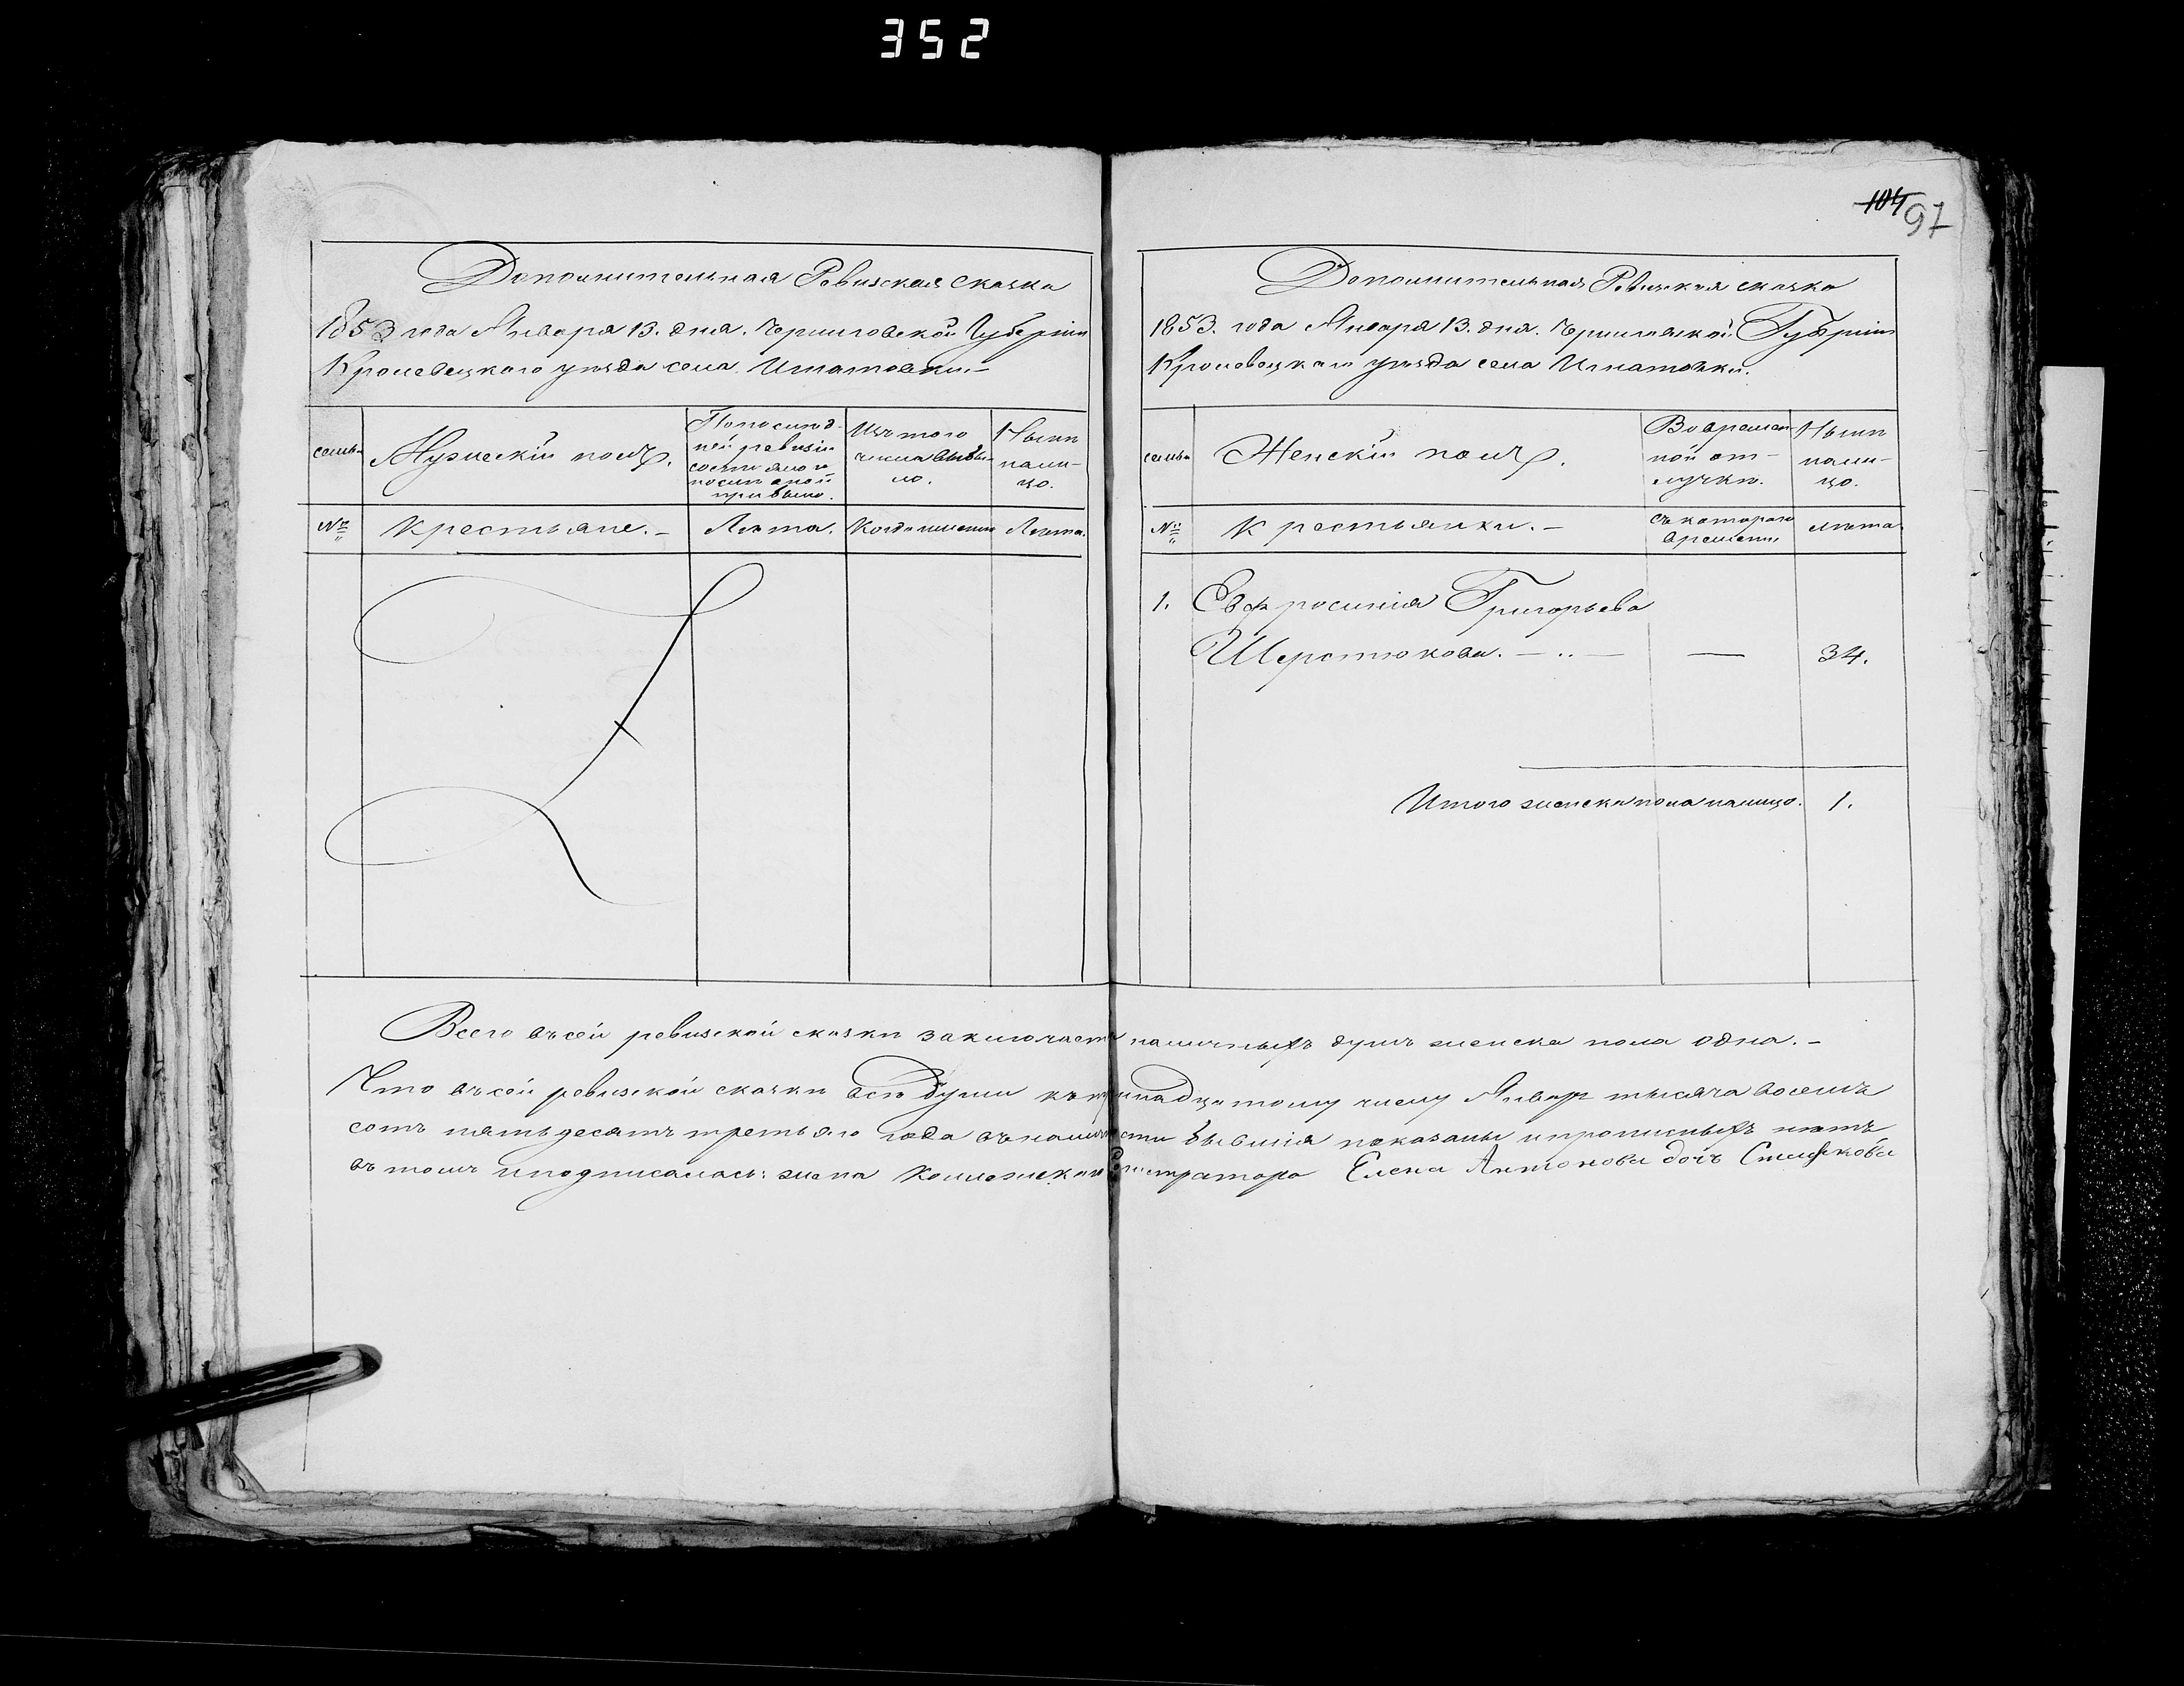 352
104 97
Дополнительная Ревизская сказка
1853 года Января 13. дня. Черниговской Губерніи
Кролевецкого уезда села Игнатовки. –
семьи
Мужескій полъ.
По последней ревизіи состояло и после оной прибыло.
Изъ того числа выбыло.
Ныне на лицо.
№
Крестьяне. –
Лета.
Когда именно
Лета.
Дополнительная Ревизская сказка
1853. года Января 13. дня. Черниговской Губерніи
Кролевецкаго уезда села Игнатовки.
семьи
Женскій полъ.
Во временной отлучке.
Ныне на лицо.
№
Крестьянки. –
съ котораго времени
лета
1. Евфросинія Григорьева
Шерстюкова. — .. — — 34.
Итого женска пола налицо. 1.
Всего въ сей ревизской сказки заключается наличныхъ душъ женска пола одна. –
Что въ сей ревизской сказки все души къ тринадцатому числу Январ тысяча восемъ
сотъ пятьдесятъ третьяго года въ наличности бывшія показаны и прописныхъ нетъ
въ томъ и подписалась: жена Коллежскаго Регистратора Елена Антонова дочь